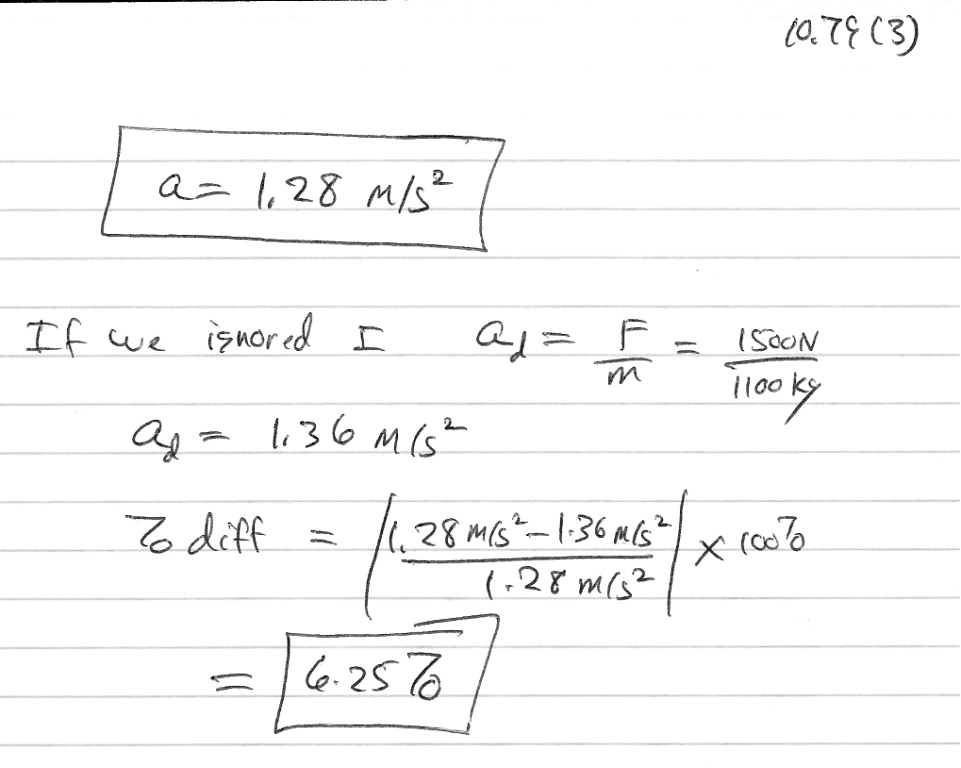 10.79 (3)
a = 1.28 m/s²
If we ignored I a_d = F/m = 1500N/1100kg
a_d = 1.36 m/s²
% diff = |(1.28 m/s² - 1.36 m/s²)/(1.28 m/s²)| × 100%
= 6.25%